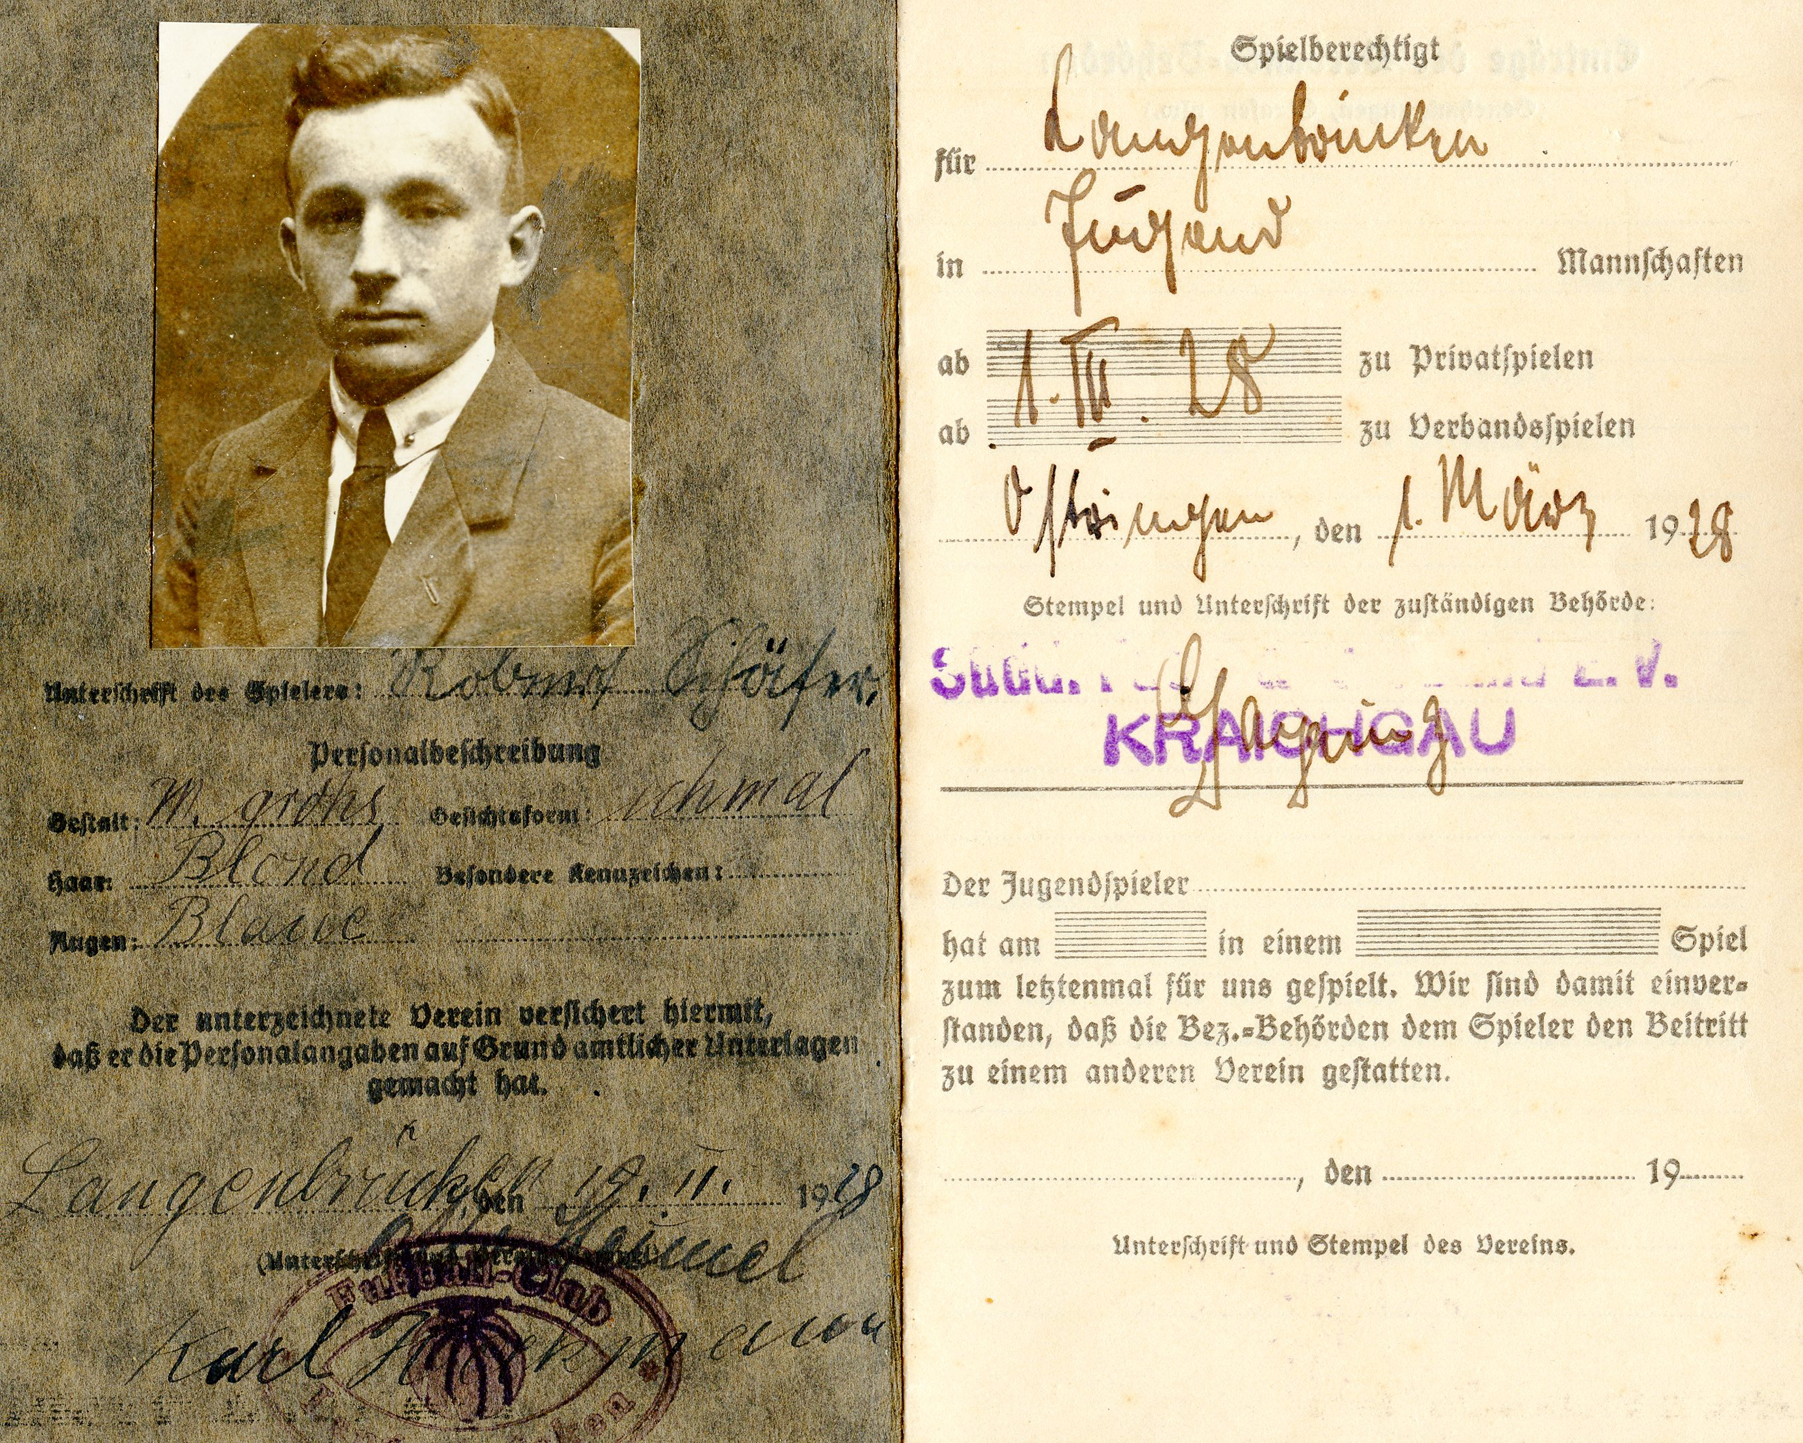 Unterschrift des Spielers: Robert Schäfer.
Personalbeschreibung
Gestalt: M. grohs Gesichtsform: schmal
Haar: Blond Besondere Kennzeichen:
Augen: Blaue
Der unterzeichnete Verein versichert hiermit,
daß er die Personalangaben auf Grund amtlicher Unterlagen
gemacht hat.
Langenbrücken, den 19. II. 1928
Karl
Fußball-Club
Spielberechtigt
für Langenbrücken
in Jugend Mannschaften
ab 1. III. 28 zu Privatspielen
ab zu Verbandsspielen
Östringen, den 1. März 1928
Stempel und Unterschrift der zuständigen Behörde:
E. V.
KRAICHGAU
Der Jugendspieler
hat am in einem Spiel
zum letztenmal für uns gespielt. Wir sind damit einver-
standen, daß die Bez.-Behörden dem Spieler den Beitritt
zu einem anderen Verein gestatten.
, den 19
Unterschrift und Stempel des Vereins.